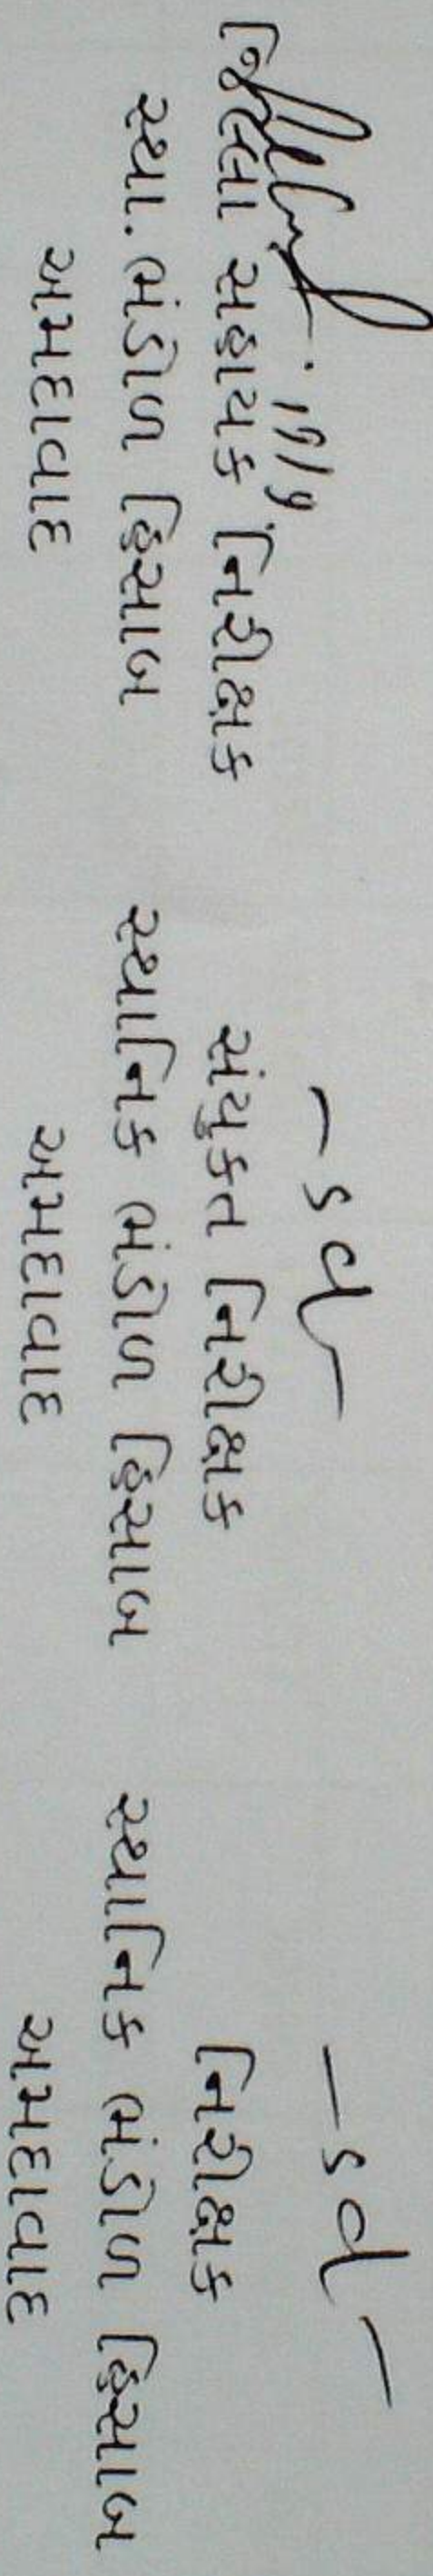 જિલ્લા સહાયક નિરીક્ષક
સ્થા. ભંડોળ હિસાબ
અમદાવાદ
-sd-
સંયુક્ત નિરીક્ષક
સ્થાનિક ભંડોળ હિસાબ
અમદાવાદ
-sd-
નિરીક્ષક
સ્થાનિક ભંડોળ હિસાબ
અમદાવાદ